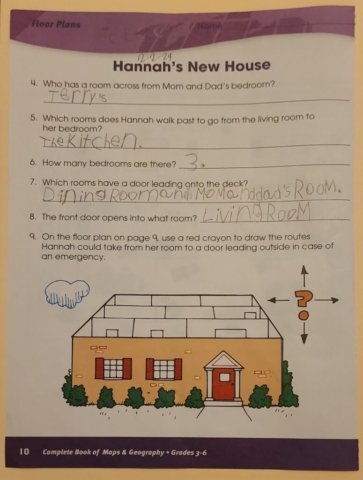 Floor Plans
Name
12-2-24
Hannah's New House
4. Who has a room across from Mom and Dad's bedroom?
Terry's
5. Which rooms does Hannah walk past to go from the living room to
her bedroom?
The kitchen.
6. How many bedrooms are there? 3.
7. Which rooms have a door leading onto the deck?
Dining Room and Mom and dad's Room.
8. The front door opens into what room? Living Room
9. On the floor plan on page 9, use a red crayon to draw the routes
Hannah could take from her room to a door leading outside in case of
an emergency.
?
10 Complete Book of Maps & Geography • Grades 3-6